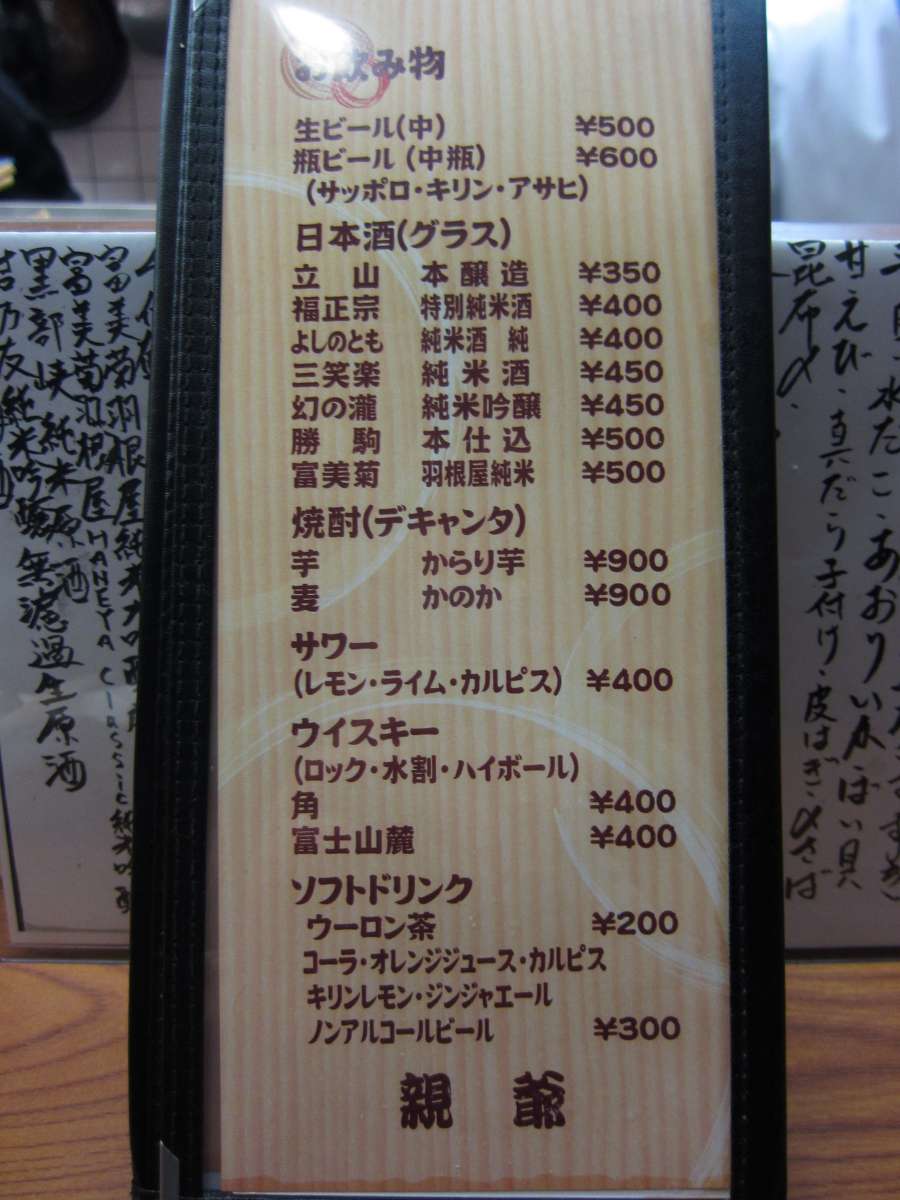 お飲み物
生ビール(中) ¥500
瓶ビール(中瓶) ¥600
(サッポロ・キリン・アサヒ)
日本酒(グラス)
立山 本醸造 ¥350
福正宗 特別純米酒 ¥400
よしのとも 純米酒 純 ¥400
三笑楽 純米酒 ¥450
幻の瀧 純米吟醸 ¥450
勝駒 本仕込 ¥500
富美菊 羽根屋純米 ¥500
焼酎(デキャンタ)
芋 からり芋 ¥900
麦 かのか ¥900
サワー
(レモン・ライム・カルピス) ¥400
ウイスキー
(ロック・水割・ハイボール)
角 ¥400
富士山麓 ¥400
ソフトドリンク
ウーロン茶 ¥200
コーラ・オレンジジュース・カルピス
キリンレモン・ジンジャエール
ノンアルコールビール ¥300
親爺
水だこ・あおりいか・ばい貝
甘えび・真だら子付け・皮はぎ・〆さば
昆布〆・
富美菊羽根屋純米大吟
富美菊羽根屋HANEYA Classic純米吟醸
黒部峡純米原酒
吉乃友純米吟醸無濾過生原酒